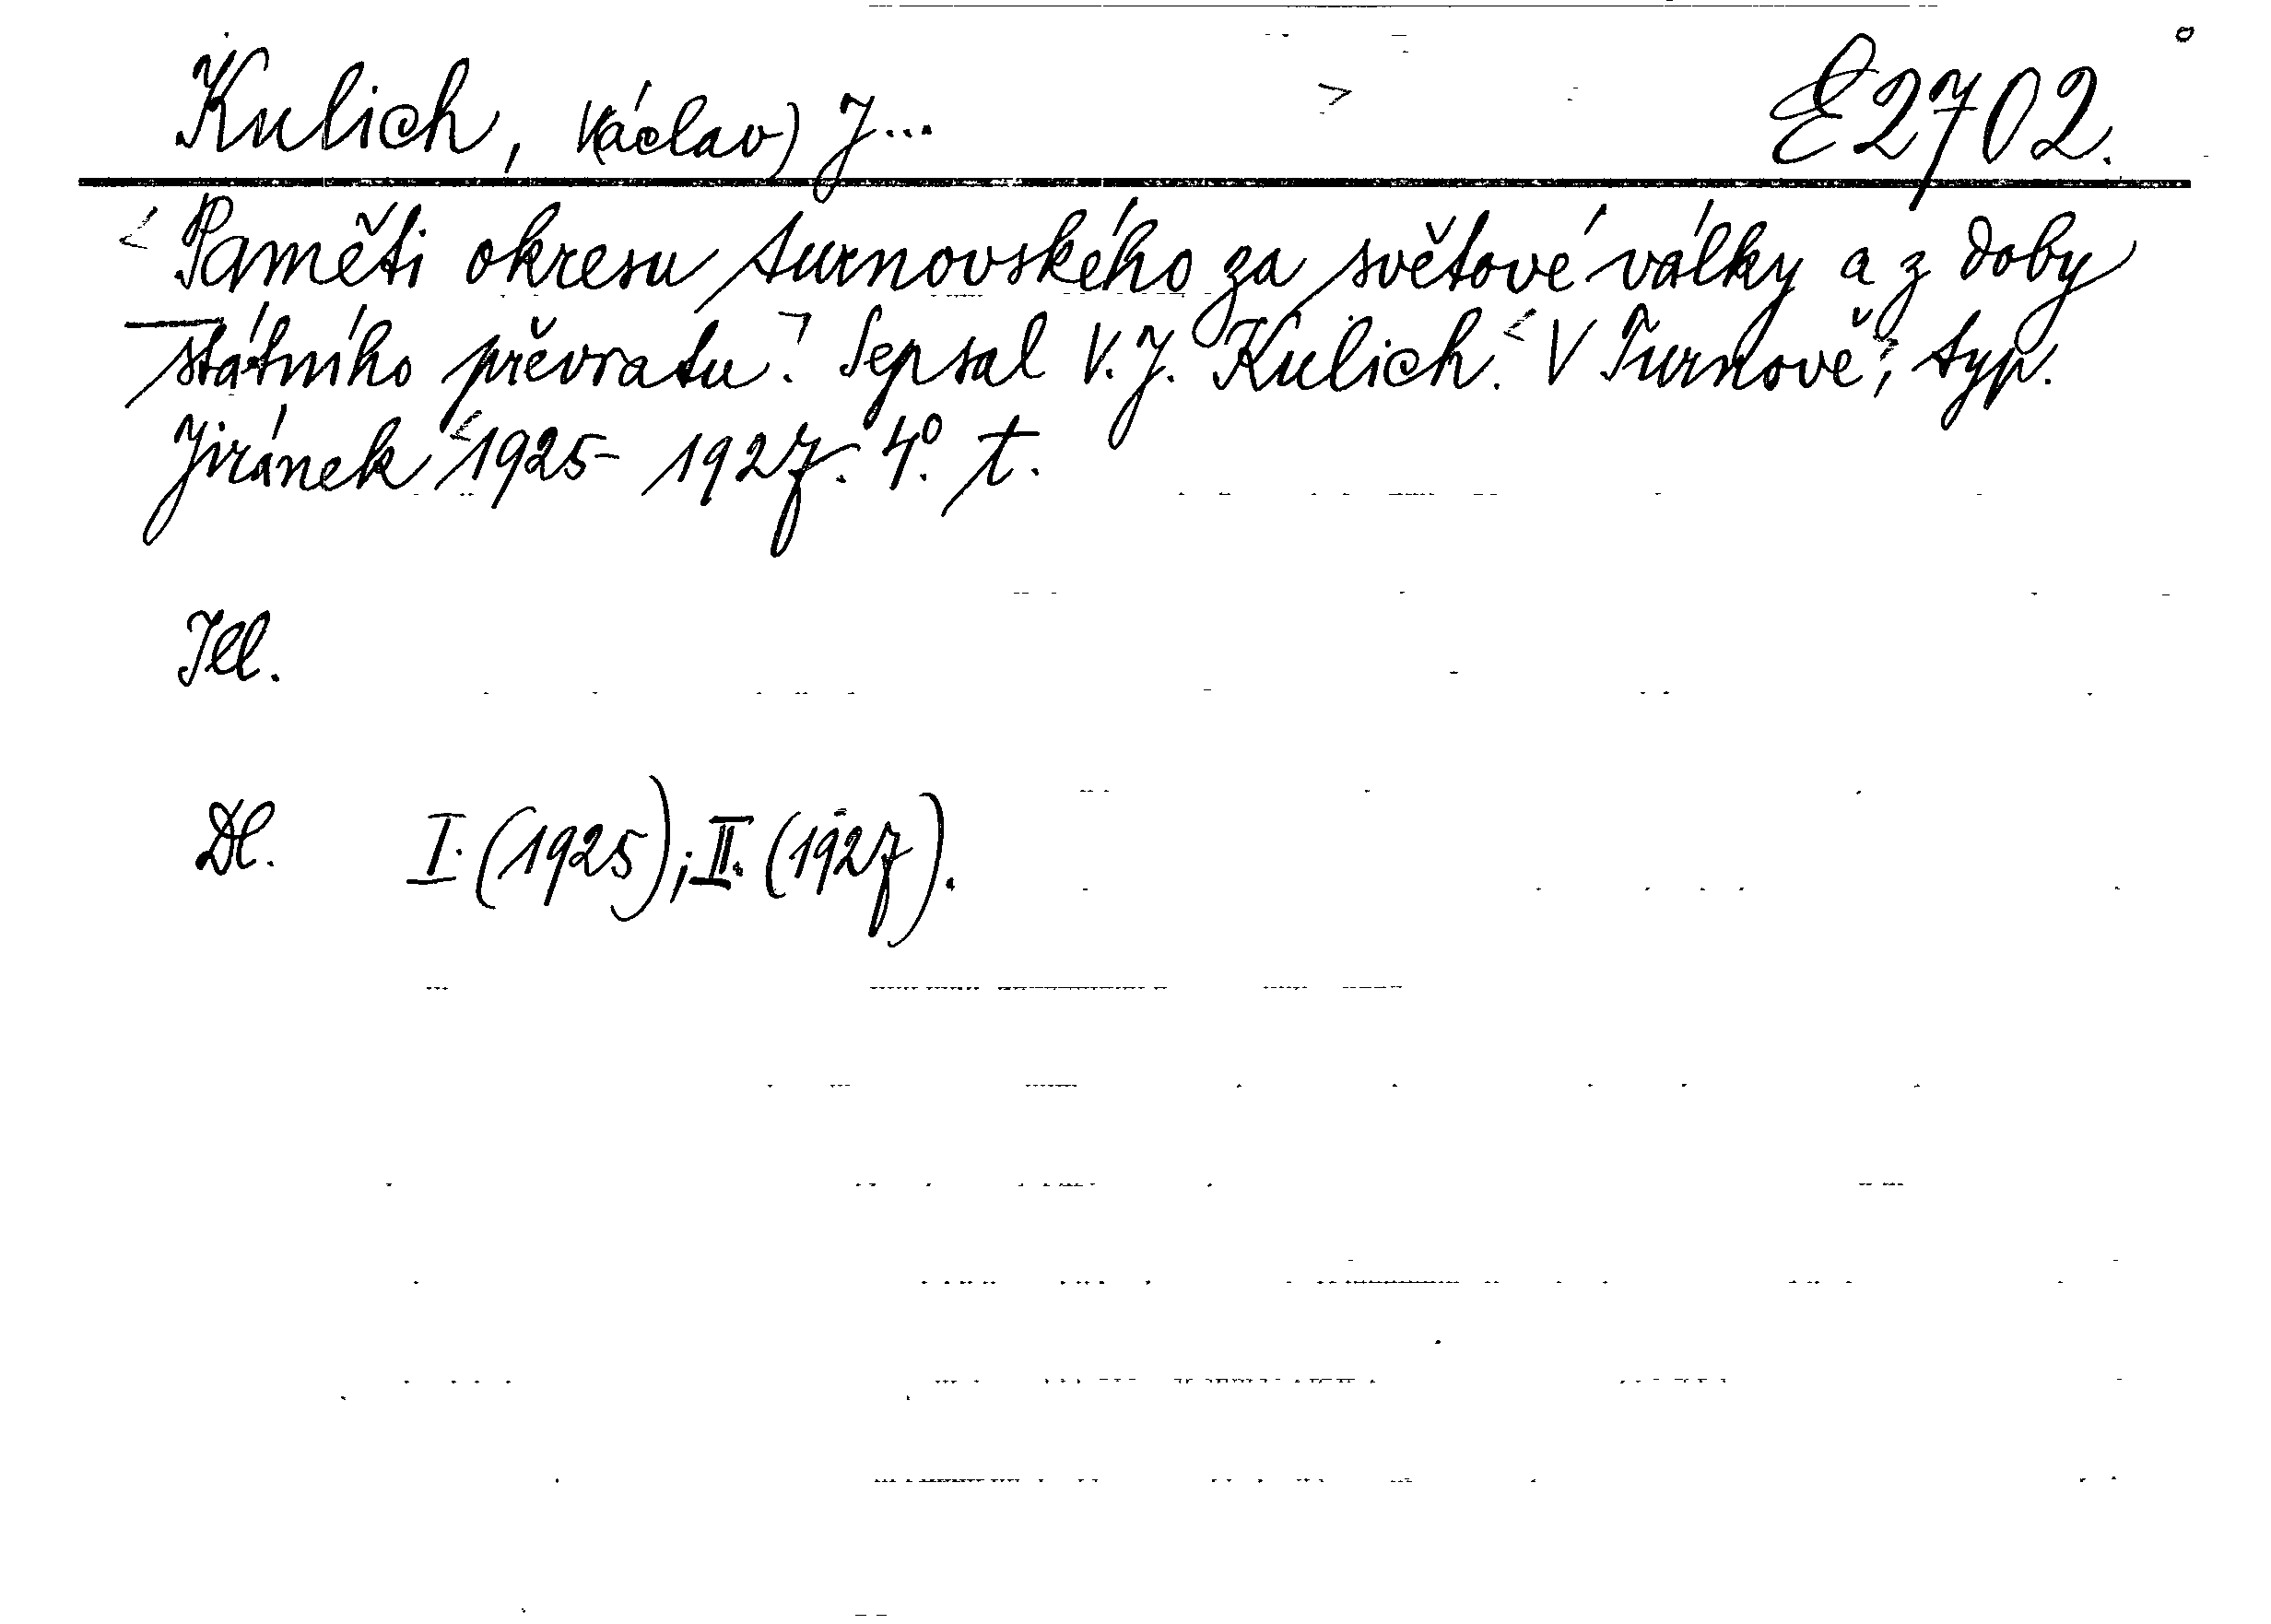 Kulich, V(áclav) J... E 2702.
Paměti okresu turnovského za světové války a z doby
státního převratu. Sepsal V. J. Kulich. V Turnově, typ.
Jiránek 1925-1927. 4°. t.
Ill.
Dl. I. (1925); II. (1927).